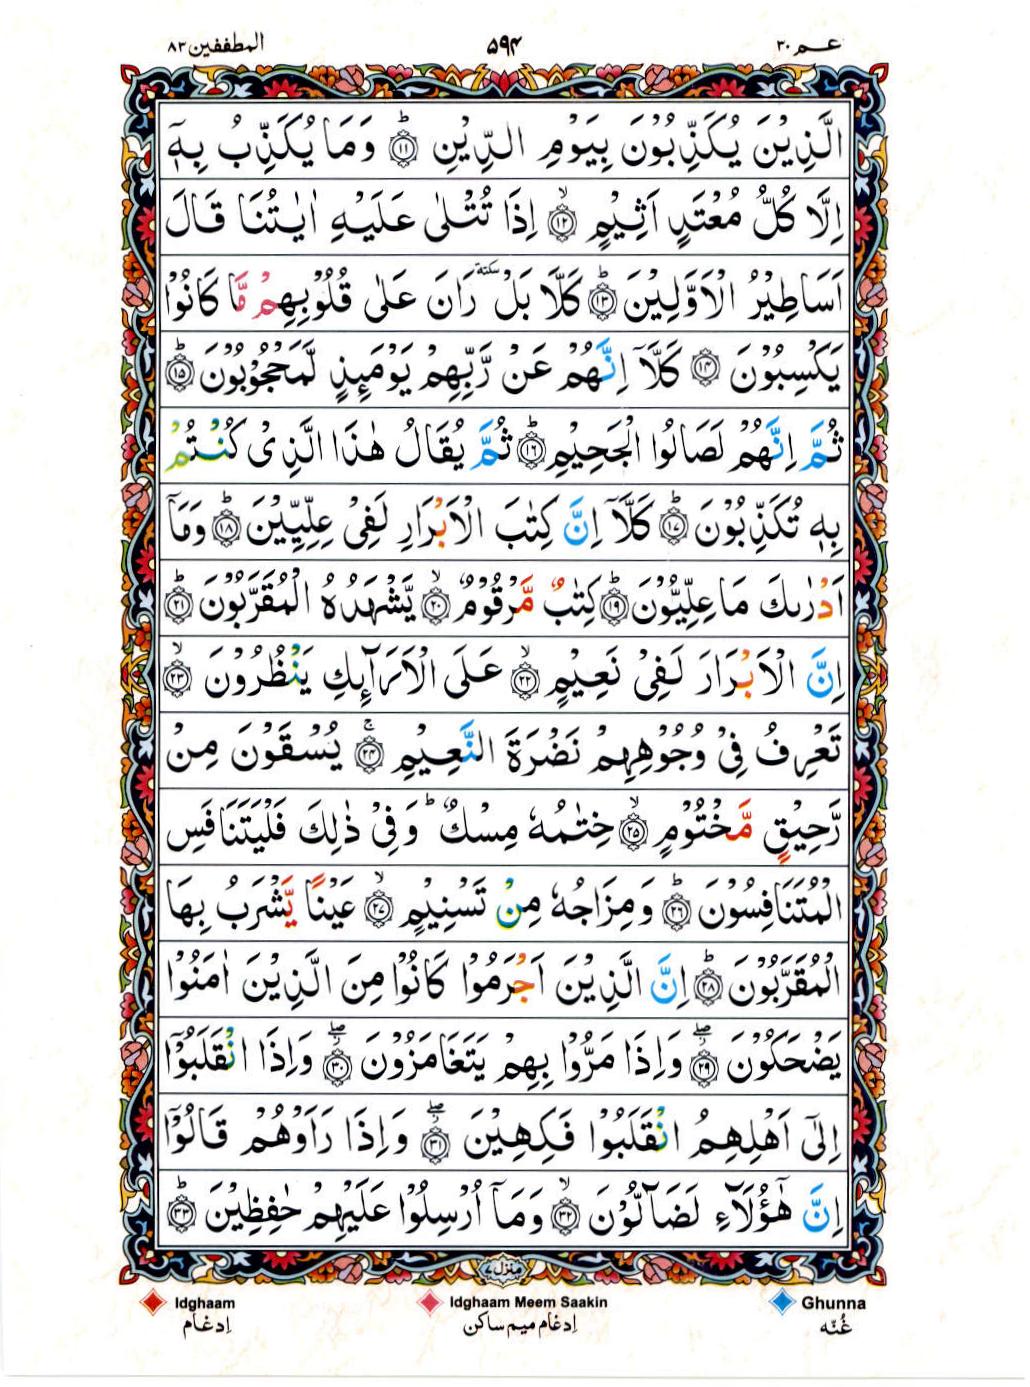 عـم ٣٠ ٥٩٤ المطففين ٨٣
الَّذِيْنَ يُكَذِّبُوْنَ بِيَوْمِ الدِّيْنِ ؕ﴿۱۱﴾ وَمَا يُكَذِّبُ بِهٖۤ
اِلَّا كُلُّ مُعْتَدٍ اَثِيْمٍ ۙ﴿۱۲﴾ اِذَا تُتْلٰى عَلَيْهِ اٰيٰتُنَا قَالَ
اَسَاطِيْرُ الْاَوَّلِيْنَ ؕ﴿۱۳﴾ كَلَّا بَلْ سكتة رَانَ عَلٰى قُلُوْبِهِمْ مَّا كَانُوْا
يَكْسِبُوْنَ ﴿۱۴﴾ كَلَّاۤ اِنَّهُمْ عَنْ رَّبِّهِمْ يَوْمَئِذٍ لَّمَحْجُوْبُوْنَ ؕ﴿۱۵﴾
ثُمَّ اِنَّهُمْ لَصَالُوا الْجَحِيْمِ ؕ﴿۱۶﴾ ثُمَّ يُقَالُ هٰذَا الَّذِىْ كُنْتُمْ
بِهٖ تُكَذِّبُوْنَ ؕ﴿۱۷﴾ كَلَّاۤ اِنَّ كِتٰبَ الْاَبْرَارِ لَفِىْ عِلِّيِّيْنَ ؕ﴿۱۸﴾ وَمَاۤ
اَدْرٰىكَ مَا عِلِّيُّوْنَ ؕ﴿۱۹﴾ كِتٰبٌ مَّرْقُوْمٌ ۙ﴿۲۰﴾ يَّشْهَدُهُ الْمُقَرَّبُوْنَ ؕ﴿۲۱﴾
اِنَّ الْاَبْرَارَ لَفِىْ نَعِيْمٍ ۙ﴿۲۲﴾ عَلَى الْاَرَآئِكِ يَنْظُرُوْنَ ۙ﴿۲۳﴾
تَعْرِفُ فِىْ وُجُوْهِهِمْ نَضْرَةَ النَّعِيْمِ ۚ﴿۲۴﴾ يُسْقَوْنَ مِنْ
رَّحِيْقٍ مَّخْتُوْمٍ ۙ﴿۲۵﴾ خِتٰمُهٗ مِسْكٌ ؕ وَفِىْ ذٰلِكَ فَلْيَتَنَافَسِ
الْمُتَنَافِسُوْنَ ؕ﴿۲۶﴾ وَمِزَاجُهٗ مِنْ تَسْنِيْمٍ ۙ﴿۲۷﴾ عَيْنًا يَّشْرَبُ بِهَا
الْمُقَرَّبُوْنَ ؕ﴿۲۸﴾ اِنَّ الَّذِيْنَ اَجْرَمُوْا كَانُوْا مِنَ الَّذِيْنَ اٰمَنُوْا
يَضْحَكُوْنَ ۖ﴿۲۹﴾ وَاِذَا مَرُّوْا بِهِمْ يَتَغَامَزُوْنَ ۖ﴿۳۰﴾ وَاِذَا انْقَلَبُوْۤا
اِلٰٓى اَهْلِهِمُ انْقَلَبُوْا فَكِهِيْنَ ۖ﴿۳۱﴾ وَاِذَا رَاَوْهُمْ قَالُوْۤا
اِنَّ هٰٓؤُلَاۤءِ لَضَآلُّوْنَ ۙ﴿۳۲﴾ وَمَاۤ اُرْسِلُوْا عَلَيْهِمْ حٰفِظِيْنَ ؕ﴿۳۳﴾
منزل ۷
Idghaam Idghaam Meem Saakin Ghunna
اِدغام اِدغام میم ساکن غُنّه